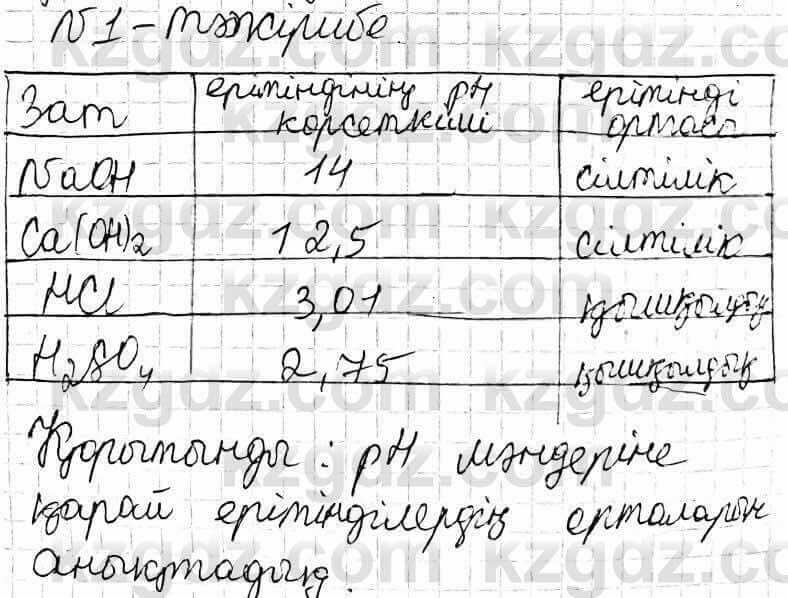 N1-тәжірибе.
Зат ерітіндінің pH көрсеткіші ерітінді ортасы
NaOH 14 сілтілік
Ca(OH)2 12,5 сілтілік
HCl 3,01 қышқылдық
H2SO4 2,75 қышқылдық
Қорытынды: pH мәндеріне
қарай ерітінділердің орталарын
анықтадық.
kzgdz.com